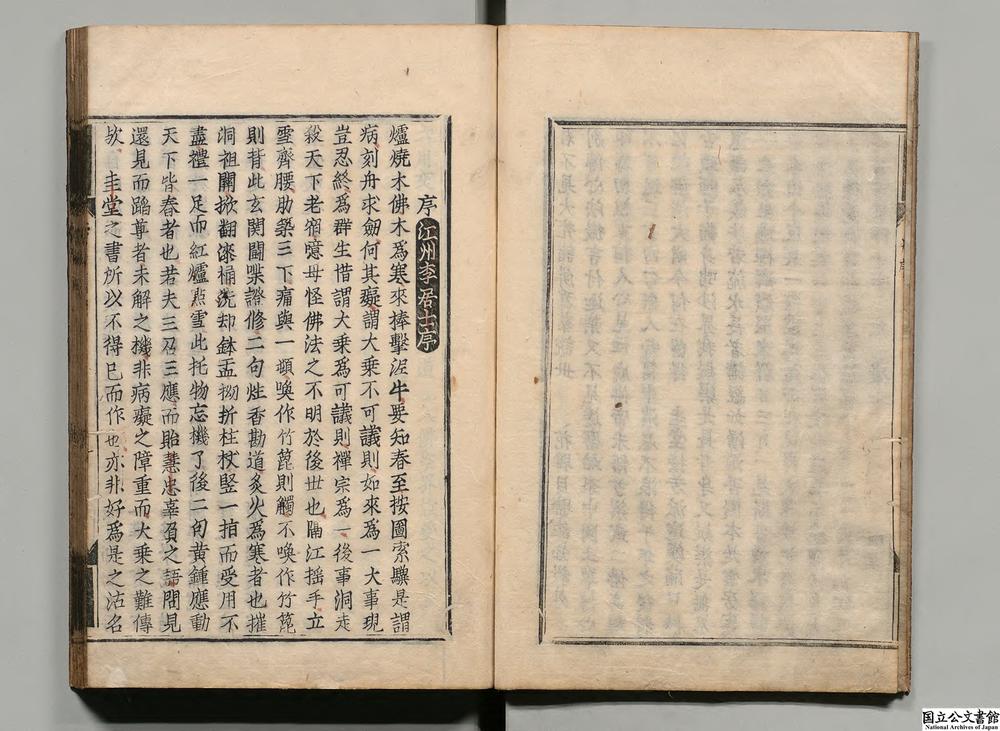 序 江州李居士序
爐燒木佛木爲寒來捧擊泥牛要知春至按圖索驥是謂
病刻舟求劔何其癡謂大乗不可議則如來爲一大事現
豈忍終爲群生惜謂大乗爲可議則禪宗爲一後事洞走
殺天下老宿噫毋怪佛法之不明於後世也隔江揺手立
雪齊腰肋築三下痛與一頓喚作竹篦則觸不喚作竹篦
則背此玄関闢喋諮修二句炷香勘道炙火爲寒者也摧
洞祖關掀翻漆桶洗却鉢盂拗折柱杖竪一拍而受用不
盡禮一足而紅爐点雪此托物忘機了後二句黄鍾應動
天下皆春者也若夫三召三應而貽慧忠辜負之語閗見
還見而蹈尊者未解之機非病癡之障重而大乗之難傳
欤 圭堂之書所以不得已而作也亦非好爲是之沽名
国立公文書館
National Archives of Japan